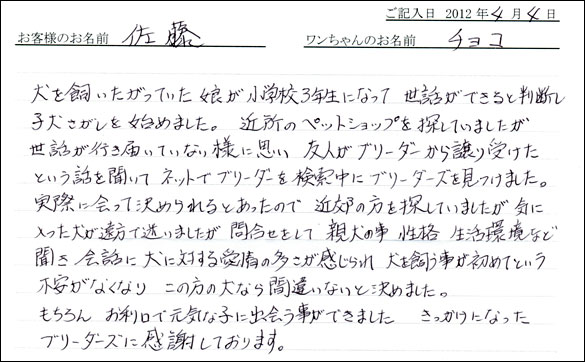 ご記入日 2012年4月4日
お客様のお名前 佐藤 ワンちゃんのお名前 チョコ
犬を飼いたがっていた娘が小学校3年生になって 世話ができると判断し
子犬さがしを始めました。 近所のペットショップを探していましたが
世話が行き届いていない様に思い 友人がブリーダーから譲り受けた
という話を聞いて ネットでブリーダーを検索中にブリーダーズを見つけました。
実際に会って決められるとあったので 近郊の方を探していましたが 気に
入った犬が遠方で迷いましたが 問合せをして 親犬の事 性格 生活環境など
聞き 会話に犬に対する愛情の多さが感じられ 犬を飼う事が初めてという
不安がなくなり この方の犬なら間違いないと決めました。
もちろん お利口で元気な子に出会う事ができました きっかけになった
ブリーダーズに感謝しております。